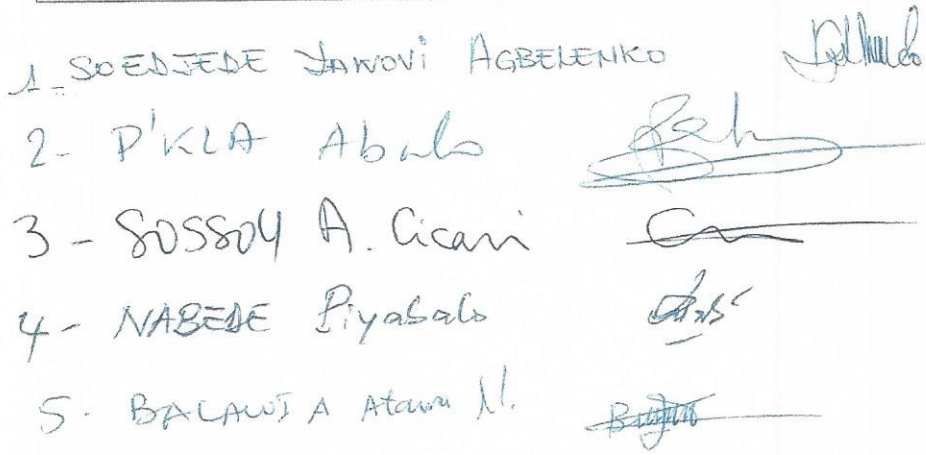 1- SOEDJEDE YAWOVi AGBELENKO
2- P'KLA Abalo
3 - SOSSOU A. Cicavi
4- NABEDE Piyabalo
5. BALAWIA Atawa N.